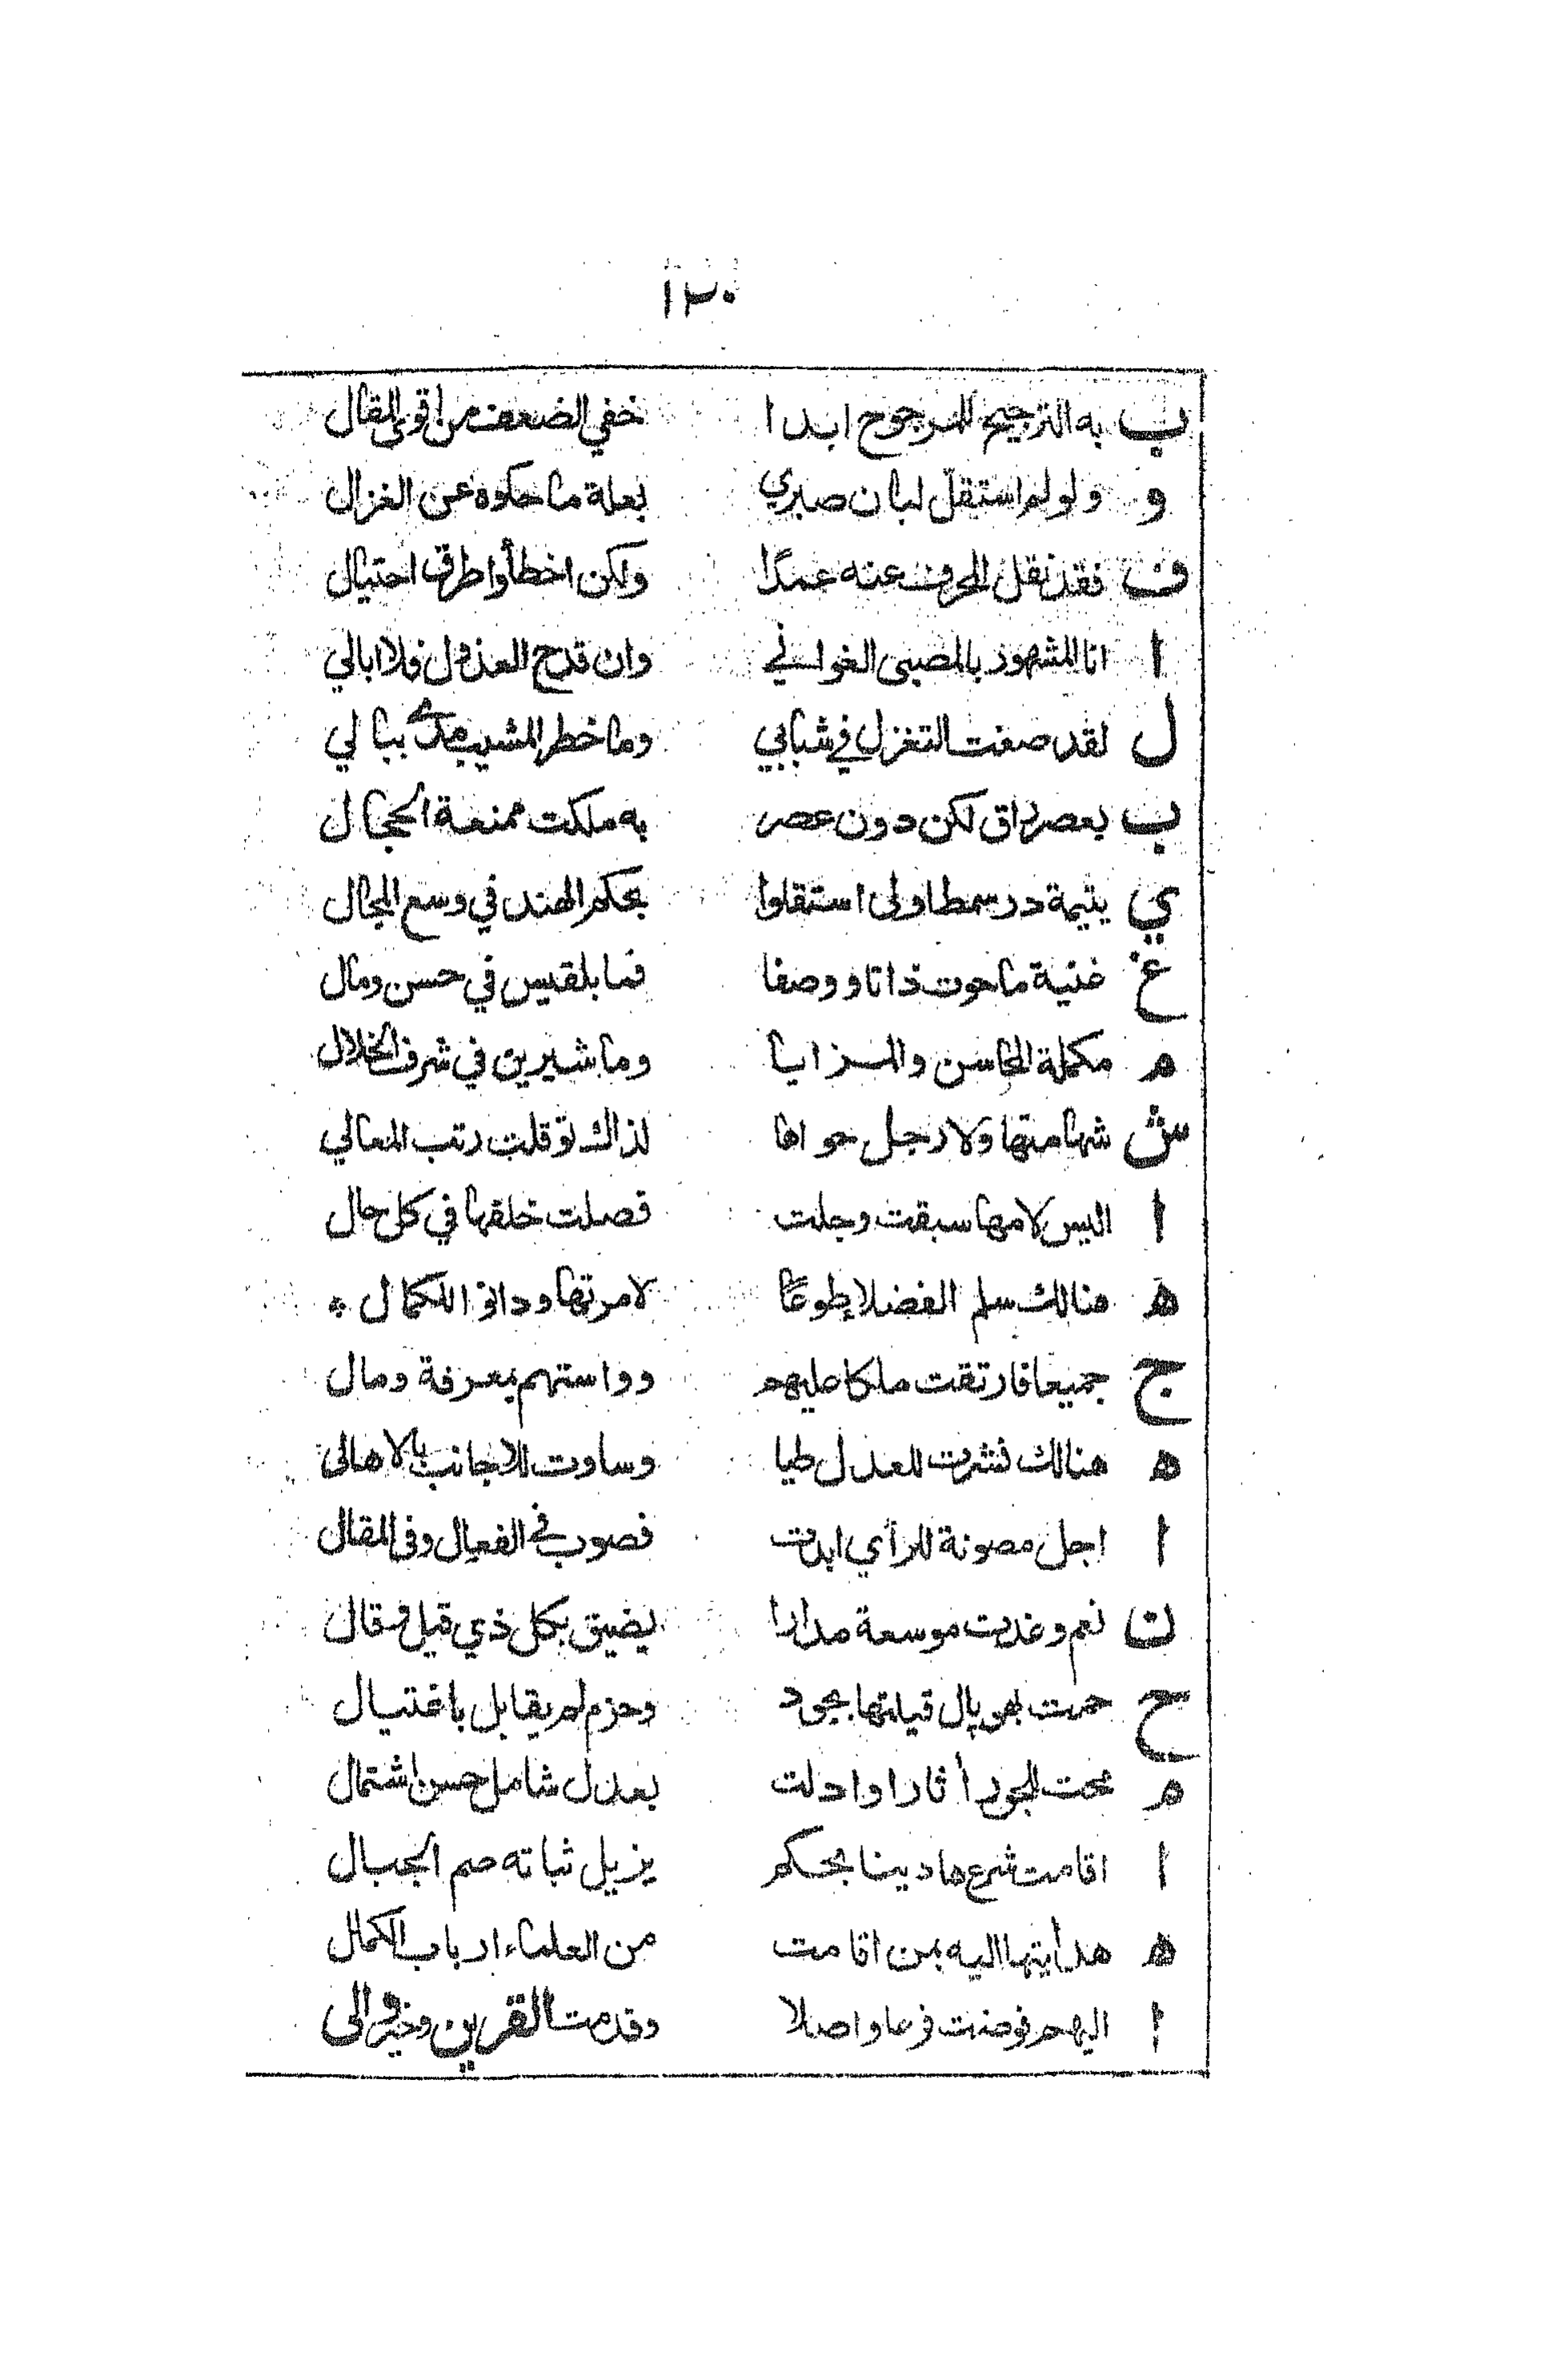 ١٣٠
ب به الترجيح للمرجوح ابدا خفي الضعف من اقوى المقال
و ولو لم استقل لبان صبري بعلة ما حكوه عن الغزال
ف فقد نقل المحرف عنه عمدًا ولكن اخطأوا طرق احتيال
ا انا المشهور بالمصبى الغواني وان قدح العذول فلا ابالي
ل لقد صغت التغزل في شبابي وما خطر المشيب مدى ببالي
ب بعصر راق لكن دون عصر به ملكت ممنعة الحجال
ي يتيمة در سمط اولى استقلوا بحكم الهند في وسع المجال
غ غنية ما حوت ذاتا ووصفا فما بلقيس في حسن ومال
م مكملة المحاسن والمزايا وما شيرين في شرف الخلال
ش شهامتها ولا رجل حواها لذاك توقلت رتب المعالي
ا اليس لامها سبقت وجلت فصلت خلفها في كل حال
ه هنالك سلم الفضلاء طوعًا لامرتها ودانوا للكمال *
ج جميعا فارتقت ملكا عليهم وواستهم بمعرفة ومال
ه هنالك نشرت للعدل طيا وساوت للاجانب بالاهالى
ا اجل مصونة للرأي ابدت فصوب في الفعال وفى المقال
ن نعم وغدت موسعة مدارا يضيق بكل ذي قيل وقال
ح حمت بهوپال قيلتها بجود وحزم لم يقابل باغتيال
م محت للجور أثارا وادلت بعدل شامل حسن اشتمال
ا اقامت شرع هادينا بحكم يزيل ثباته صم الجبال
ه هدايتها اليه بمن اقامت من العلماء ارباب الكمال
ا اليهم فوضت فرعا واصلا وقدمت القرين وخير والى